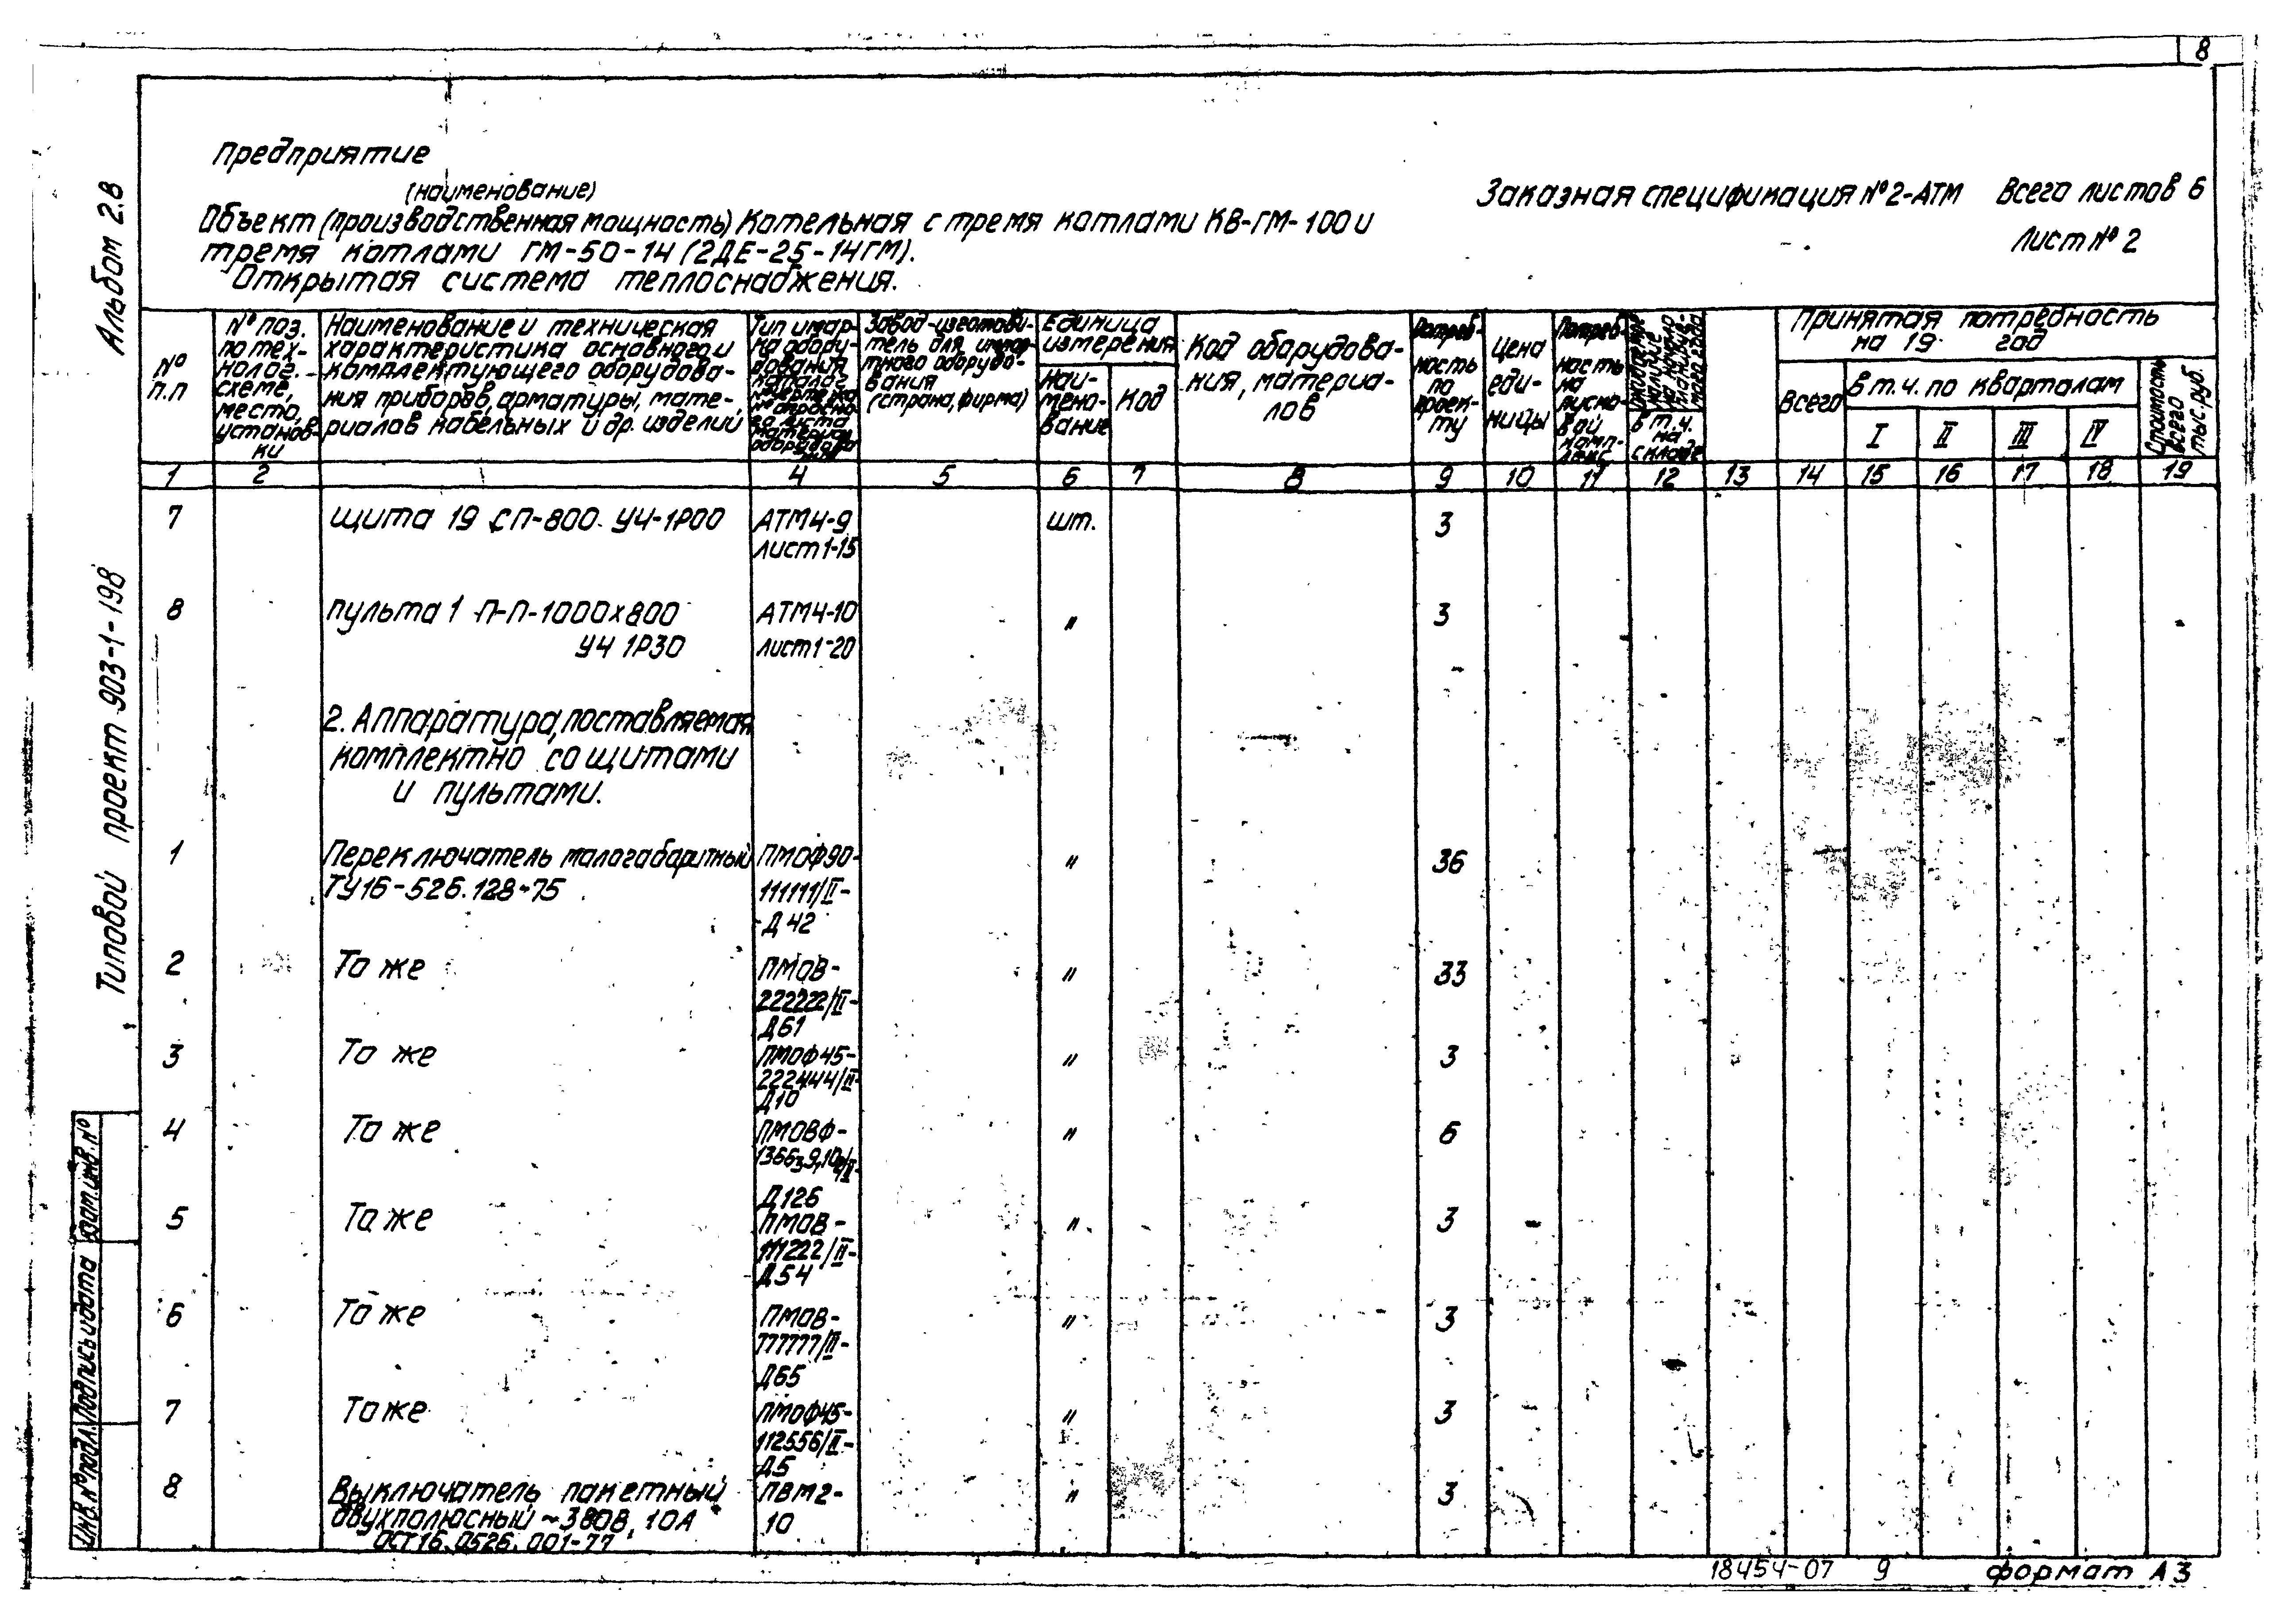 8
Предприятие
(наименование)
Заказная спецификация №2-АТМ Всего листов 6
Объект (производственная мощность) Котельная с тремя котлами КВ-ГМ-100 и
Лист № 2
тремя котлами ГМ-50-14 (2ДЕ-25-14ГМ).
Открытая система теплоснабжения.
Альбом 2.8
Типовой проект 903-1-198
Инв.№подл. Подпись и дата Взам.инв.№
№ п.п
№ поз.
по тех-
нолог.
схеме,
место
установ-
ки
Наименование и техническая
характеристика основного и
комплектующего оборудова-
ния приборов, арматуры, мате-
риалов кабельных и др. изделий
Тип и мар-
ка обору-
дования
каталог
№ чертежа
№ опросно-
го листа
материал
оборудова
ния
Завод-изготови-
тель для импор-
тного оборудо-
вания
(страна, фирма)
Единица
измерения
Наи-
мено-
вание
Код
Код оборудова-
ния, материа-
лов
Потреб-
ность
по
проек-
ту
Цена
еди-
ницы
Потреб-
ность
на
пуско-
вой
комп-
лекс
в т.ч.
на
складе
Принятая потребность
на 19 год
Всего
в т.ч. по кварталам
I II III IV
Стоимость
всего
тыс.руб.
1 2 4 5 6 7 8 9 10 11 12 13 14 15 16 17 18 19
7 щита 19 СП-800. УЧ-1Р00 АТМ4-9 шт. 3
Лист 1-15
8 пульта 1 П-П-1000х800 АТМ4-10 " 3
УЧ 1Р30 Лист 1-20
2. Аппаратура, поставляемая
комплектно со щитами
и пультами.
1 Переключатель малогабаритный ПМОФ90- " 36
ТУ16-526.128-75 111111/II-
Д42
2 То же ПМОВ- " 33
222222/II-
Д61
3 То же ПМОФ45- " 3
222444/II-
Д10
4 То же ПМОВФ- " 6
Д126
5 То же ПМОВ- " 3
111222/II-
Д54
6 То же ПМОВ- " 3
777777/III-
Д65
7 То же ПМОФ45- " 3
112556/II-
Д5
8 Выключатель пакетный ПВМ2- " 3
двухполюсный ~380В, 10А 10
ОСТ16.0526.001-77
18454-07 9 формат А3